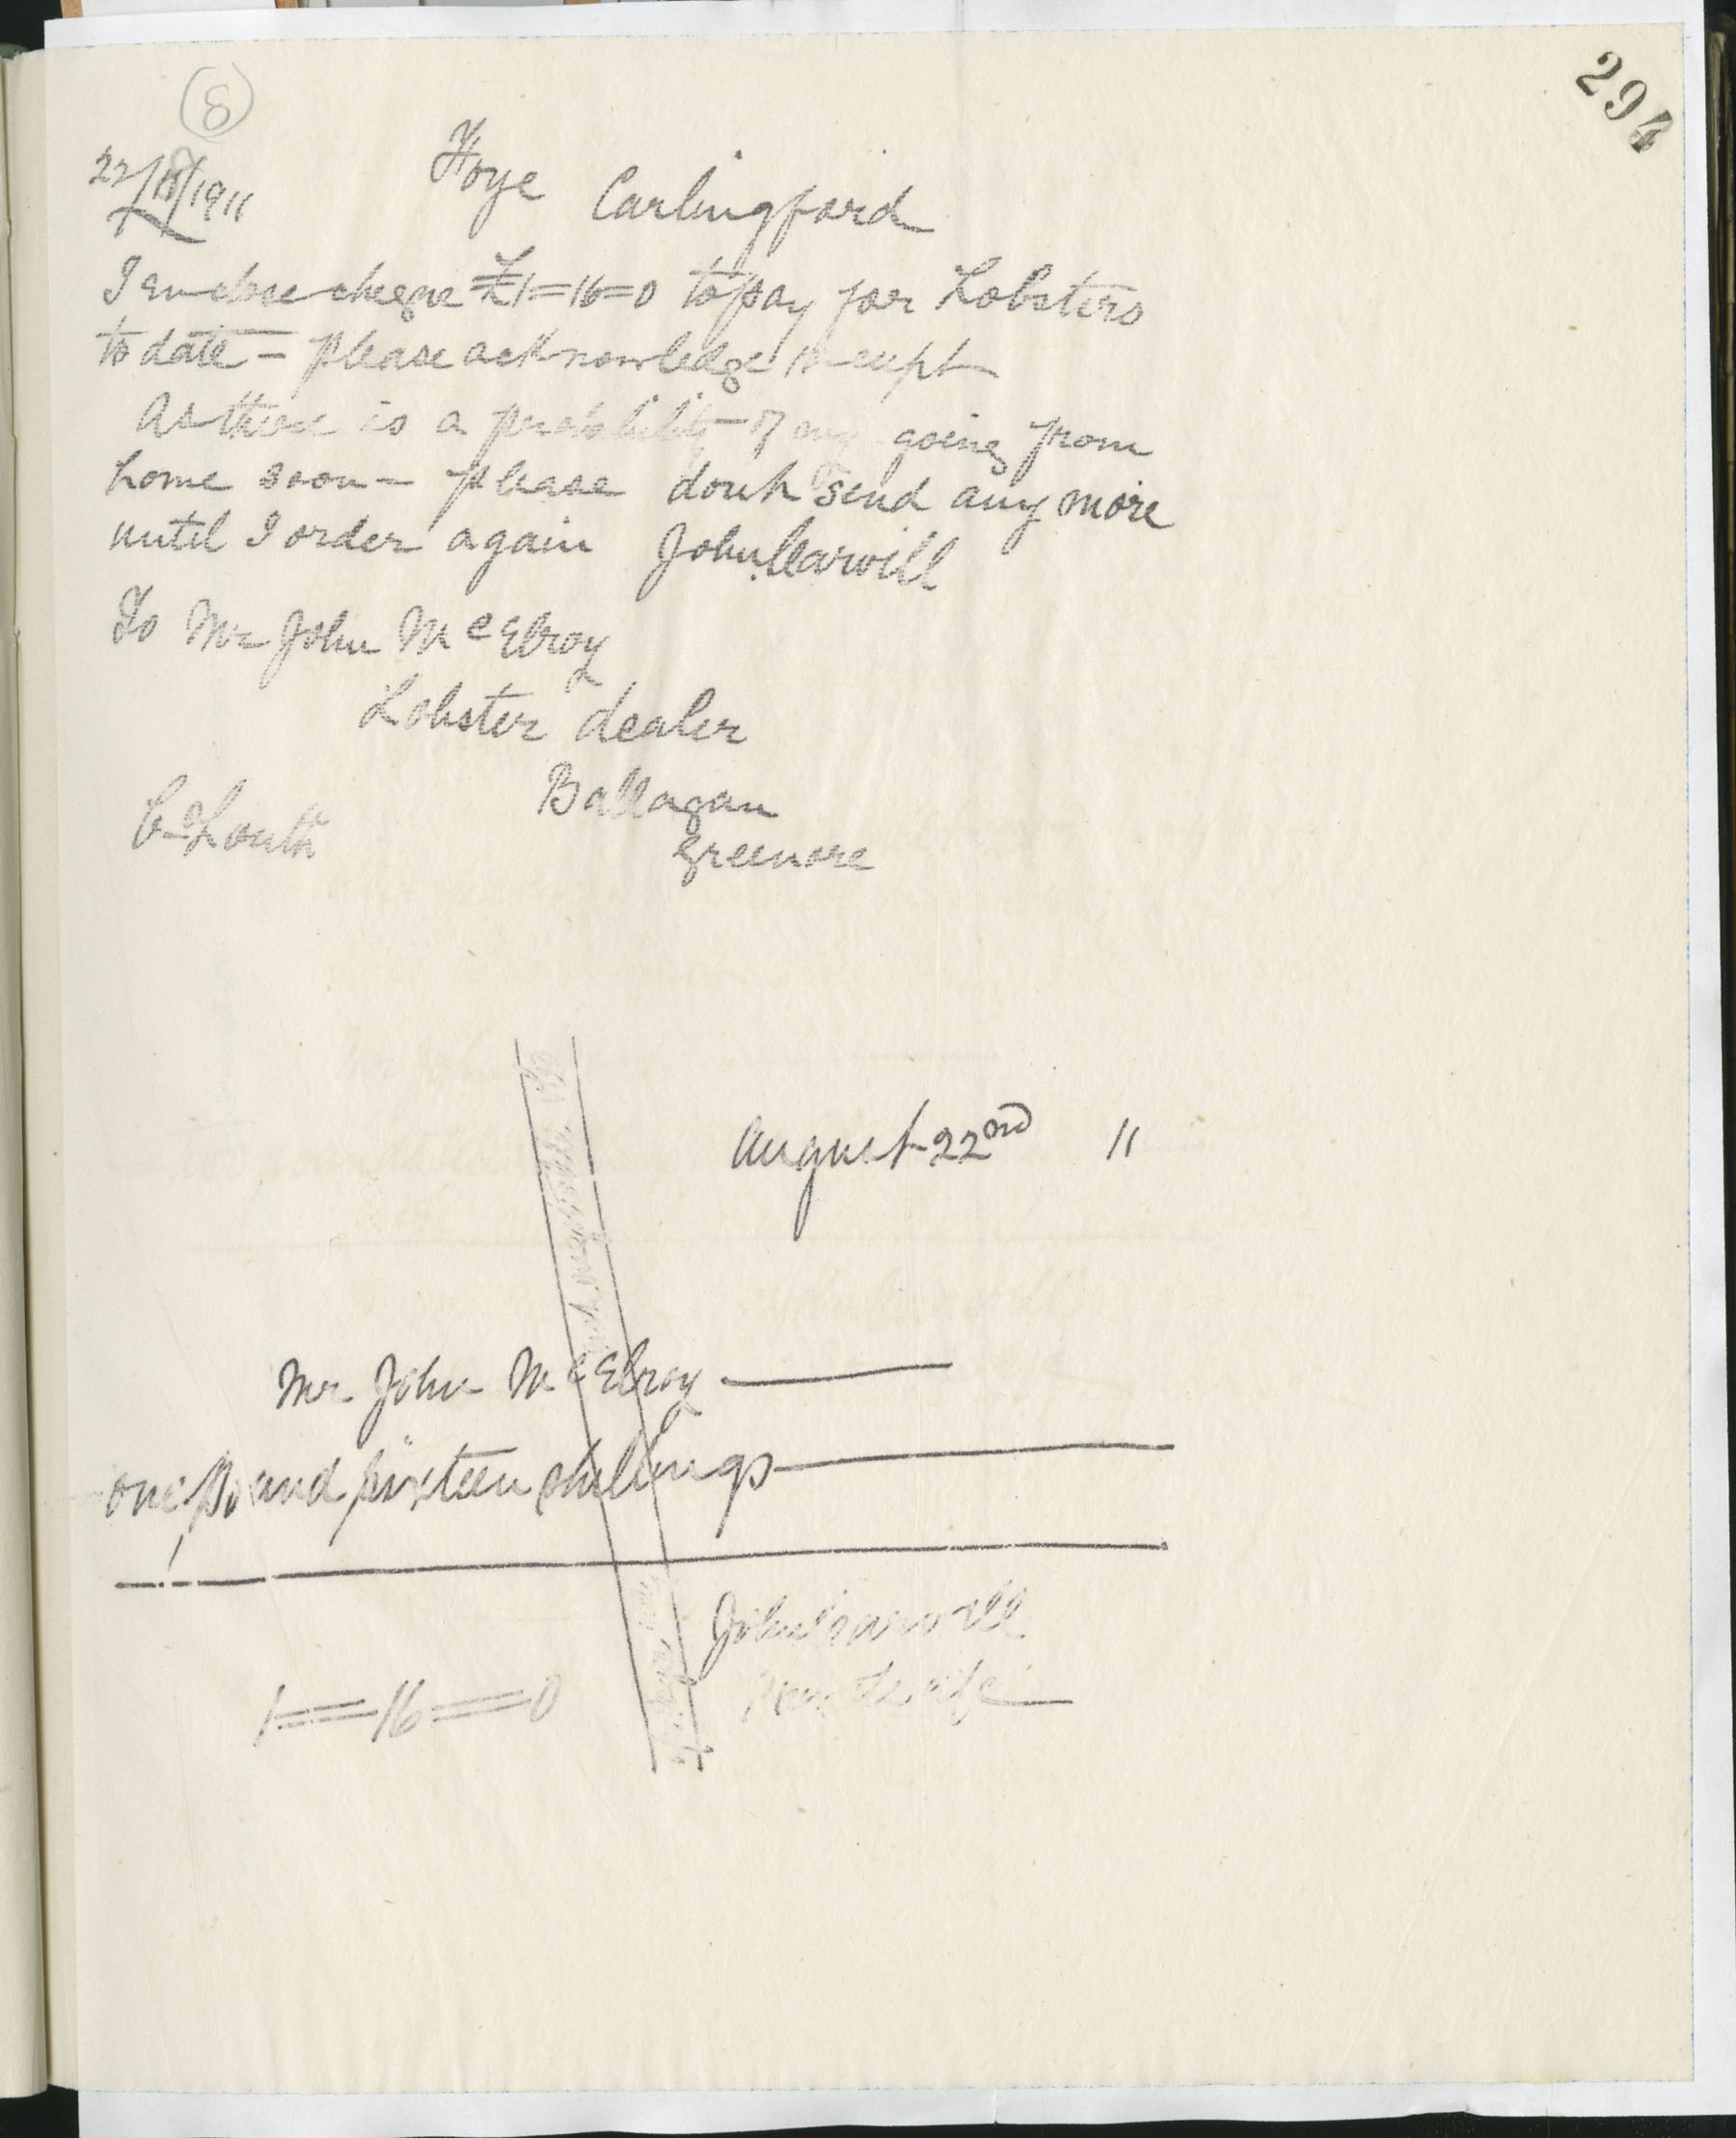 294
8
22/8/1911 Hoye Carlingford
I enclose cheque £1=16=0 to pay for Lobsters
to date - please acknowledge receipt
As there is a probability of my going from
home soon - please dont send any more
until I order again John Carvill
To Mr John McElroy
Lobster dealer
Ballagan
Greenore
Co Louth
August 22nd 11
Mr John McElroy
one pound sixteen shillings
John Carvill
1=16=0